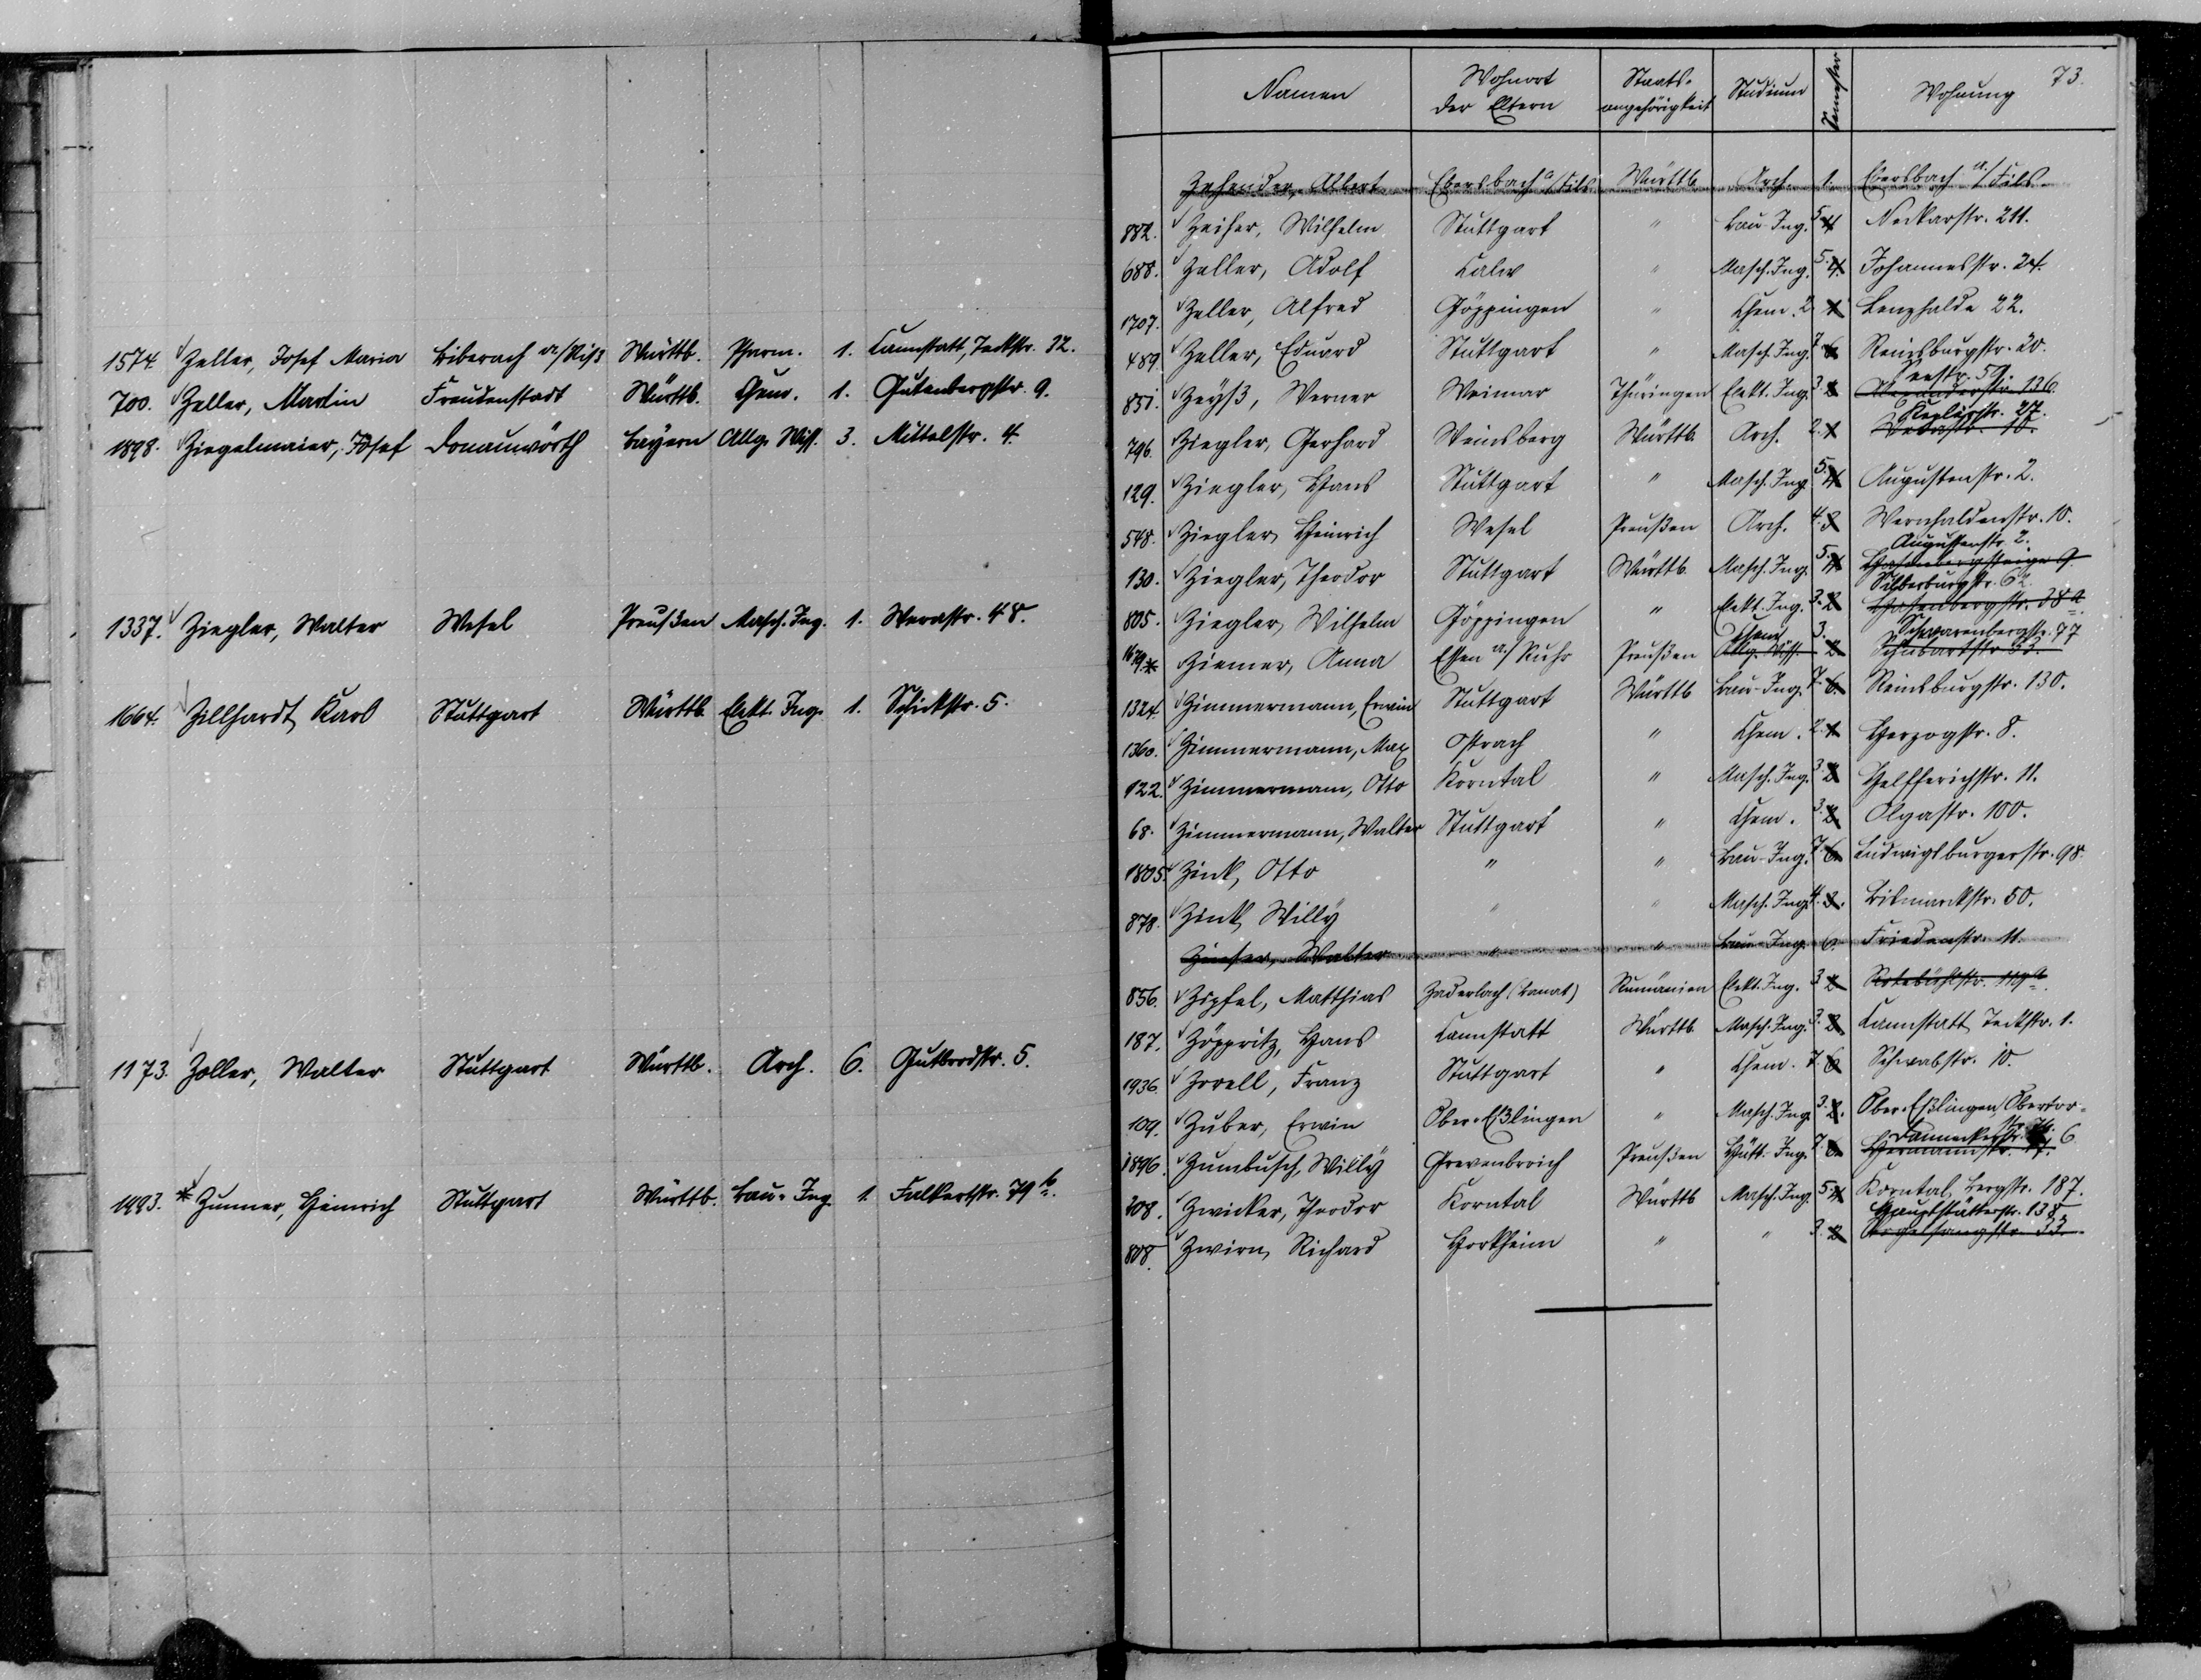 1574. Zeller, Josef Maria Biberach a/Riß Württb. Pharm. 1. Cannstatt, Teckstr. 32.
700. Zeller, Martin Freudenstadt Württb. Chem. 1. Gutenbergstr. 9.
1898. Ziegelmaier, Josef Donauwörth Bayern Allg. Wiss. 3. Mittelstr. 4.
1337. Ziegler, Walter Wesel Preußen Masch. Ing. 1. Werastr. 48.
1664. Zillhardt, Karl Stuttgart Württb. Elekt. Ing. 1. Schickstr. 5.
1173. Zoller, Walter Stuttgart Württb. Arch. 6. Gutbrodstr. 5.
1493. * Zunner, Heinrich Stuttgart Württb. Bau-Ing. 1. Falkertstr. 79 b.
73.
Namen Wohnort der Eltern Staats-angehörigkeit Studium Semester Wohnung
Zehender, Albert Ebersbach a/Fils Württb. Arch. 1. Ebersbach a/Fils.
882. Zeiher, Wilhelm Stuttgart " Bau-Ing. 5. 4. Neckarstr. 211.
688. Zeller, Adolf Calw " Masch. Ing. 5. 4. Johannesstr. 24.
1707. Zeller, Alfred Göppingen " Chem. 2. 1. Lenzhalde 22.
489. Zeller, Eduard Stuttgart " Masch. Ing. 7. 6. Reinsburgstr. 20.
Seestr. 59.
851. Zeyß, Werner Weimar Thüringen Elekt. Ing. 3. 2. Alexanderstr. 136.
Keplerstr. 27.
796. Ziegler, Gerhard Weinsberg Württb. Arch. 2. 1. 10.
129. Ziegler, Hans Stuttgart " Masch. Ing. 5. 4. Augustenstr. 2.
548. Ziegler, Heinrich Wesel Preußen Arch. 4. 3. Wernhaldenstr. 10.
Augustenstr. 2.
130. Ziegler, Theodor Stuttgart Württb. Masch. Ing. 5. 4. Hasenbergsteige 9.
Silberburgstr. 62.
805. Ziegler, Wilhelm Göppingen " Elekt. Ing. 3. 2. Hasenbergstr. 38 a.
Chem. 3. Schwarenbergstr. 77
1679 * Ziemer, Anna Essen a/Ruhr Preußen Allg. Wiss. 2. Schubartstr. 33.
1324. Zimmermann, Erwin Stuttgart Württb. Bau-Ing. 7. 6. Reinsburgstr. 130.
1360. Zimmermann, Max Ostrach " Chem. 2. 1. Herzogstr. 8.
122. Zimmermann, Otto Korntal " Masch. Ing. 3. 2. Helfferichstr. 11.
68. Zimmermann, Walter Stuttgart " Chem. 3. 2. Olgastr. 100.
1805. Zink, Otto " " Bau-Ing. 7. 6. Ludwigsburgerstr. 98.
878. Zink, Willy " " Masch. Ing. 4. 3. Bismarckstr. 50.
Zinser, Walter " " Bau-Ing. 6. Friedenstr. 11.
856. Zipfel, Matthias Zaderlach (Banat) Rumänien Elekt. Ing. 3. 2. Rotebühlstr. 119 a.
187. Zöppritz, Hans Cannstatt Württb. Masch. Ing. 3. 2. Cannstatt, Teckstr. 1.
1936. Zorell, Franz Stuttgart " Chem. 7. 6. Schwabstr. 10.
109. Zuber, Erwin Ober-Eßlingen " Masch. Ing. 3. 2. Ober-Eßlingen, Obertor-
Danneckerstr. 6
1896. Zumbusch, Willy Grevenbroich Preußen Hütt. Ing. 7. 6. Hermannstr. 17.
208. Zwicker, Theodor Korntal Württb. Masch. Ing. 5. 4. Korntal, Bergstr. 187.
Hauptstätterstr. 138
808. Zwirn, Richard Horkheim " " 3. 2. Vogelsangstr. 33.